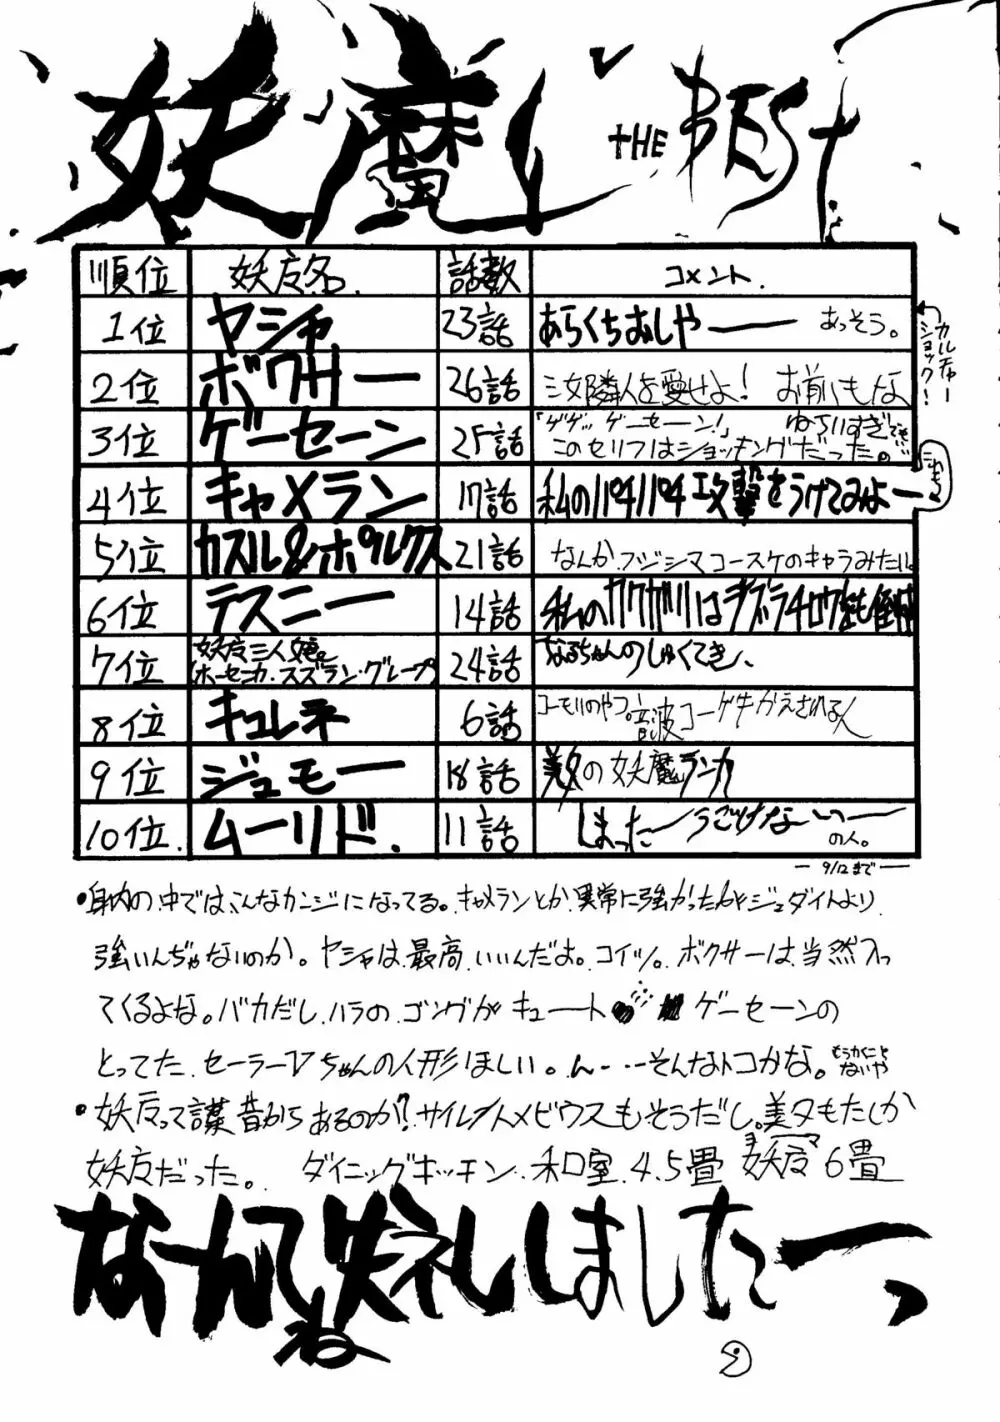 妖魔し THE BEST
順位 妖广名. 話数 コメント.
1位 ヤシャ 23話 あらくちおしやー あっそう。
カルチャーショック!
2位 ボクサー 26話 三女隣人を愛せよ! お前にもな
3位 ゲーセーン 25話 「ゲゲッ ゲーセーン!」
このセリフはショッキングだった。
4位 キャメラン 17話 私のパチパチ攻撃をうけてみよー
5位 カスル&ポルクス 21話 なんか、フジシマコースケのキャラみたい。
6位 テスニー 14話
7位 妖广三人娘。
ホーセンカ・スズラン・グレープ 24話 なるちゃんのしゅくてき、
8位 キュレネ 6話 コーモリのやつ。音波コーゲキかえされる人
9位 ジュモー 18話 美夕の妖魔ランカ
10位. ムーリド. 11話 しまったーうごけないっー
の人。
― 9/12まで ―
•身内の中では、こんなカンジになってる。キャメランとか異常に強かったわとジュダイトより
強いんぢゃないのか。ヤシャは最高、いいんだよ。コイツ。ボクサーは当然入っ
てくるよな。バカだし、ハラの、ゴングがキュート ゲーセーンの
とってた、セーラーVちゃんの人形ほしい。ん・・・そんなトコかな。 もうかくことないや
•妖广って謀昔からあるのか!? サイレントメビウスもそうだし。美夕もたしか
妖广だった。 ダイニングキッチン・和室4.5畳 妖广6畳
ヨーマ
なーんてね 失礼しましたーっ